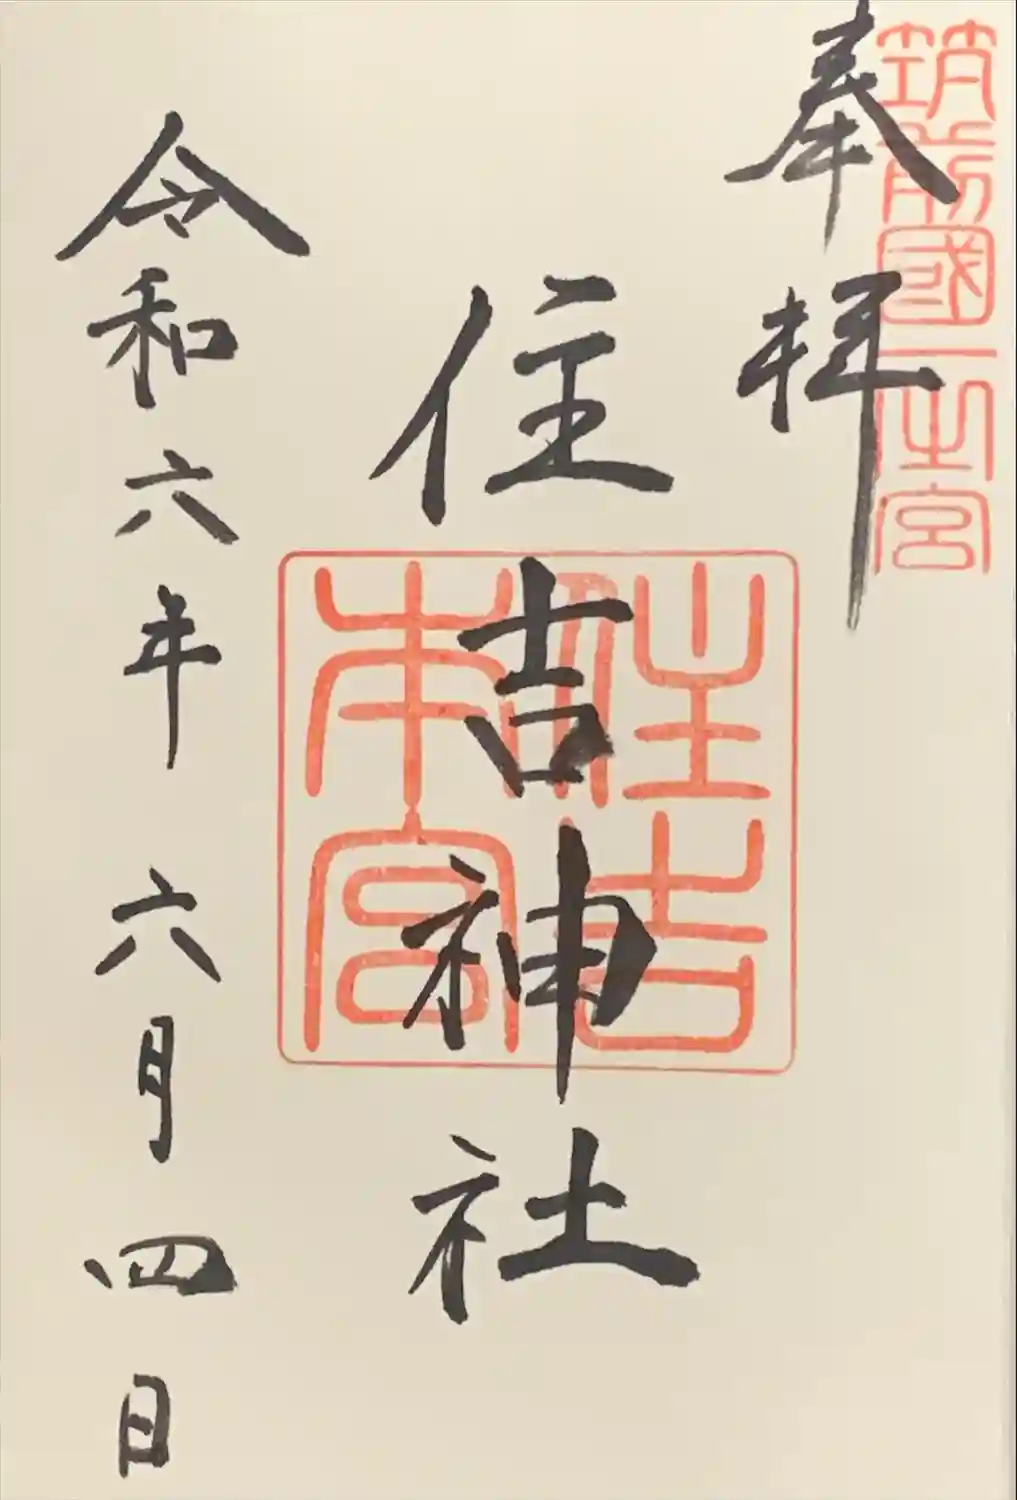 筑前國一之宮
奉拝
住吉神社
住吉
本宮
令和六年六月四日